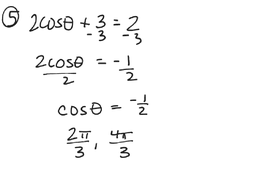 ⑤ 2cosθ + 3 = 2
-3 -3
2cosθ/2 = -1/2
cosθ = -1/2
2π/3, 4π/3